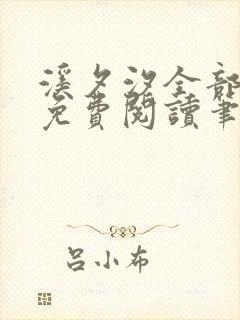 溪夕汐全部
免費閱讀筆
呂小布